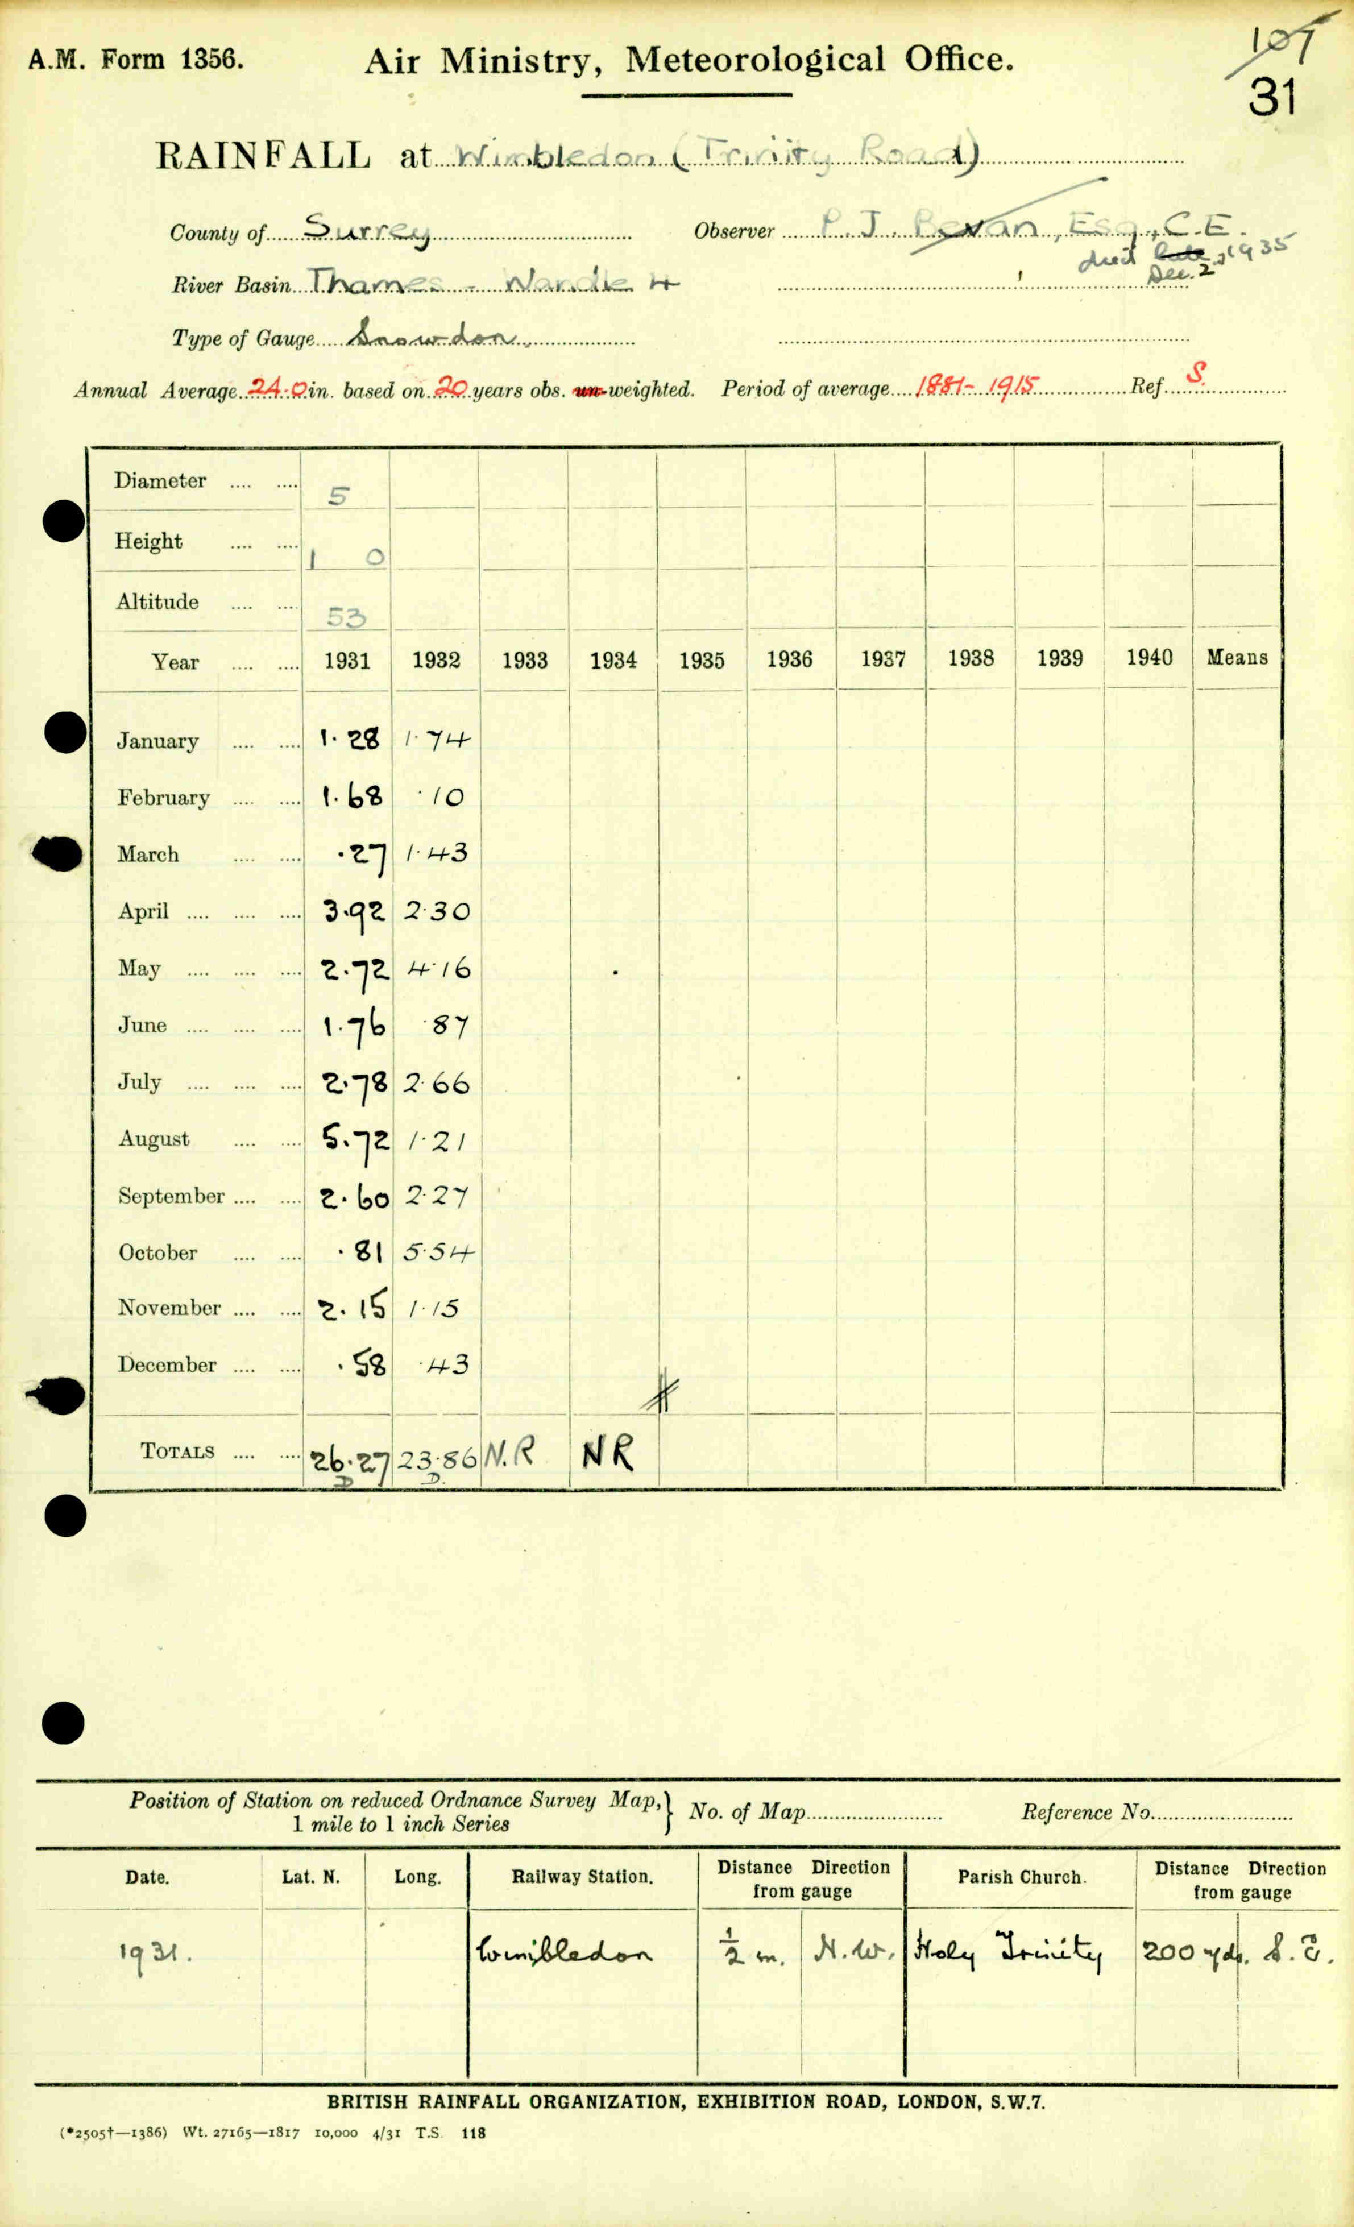 A.M. Form 1356.
Air Ministry, Meteorological Office.
107
31
RAINFALL at Wimbledon (Trinity Road)
County of Surrey Observer P. J. Bevan, Esq., C.E.
died Dec. 2, 1935
River Basin Thames - Wandle 4
Type of Gauge Snowdon.
Annual Average 24.0 in. based on 20 years obs. un-weighted. Period of average 1881-1915 Ref. S.
Diameter 5
Height 1 0
Altitude 53
Year 1931 1932 1933 1934 1935 1936 1937 1938 1939 1940 Means
January 1.28 1.74
February 1.68 .10
March .27 1.43
April 3.92 2.30
May 2.72 4.16
June 1.76 .87
July 2.78 2.66
August 5.72 1.21
September 2.60 2.27
October .81 5.54
November 2.15 1.15
December .58 .43
TOTALS 26.27 23.86 N.R NR
D D.
Position of Station on reduced Ordnance Survey Map,} No. of Map Reference No.
1 mile to 1 inch Series
Date. Lat. N. Long. Railway Station. Distance Direction from gauge Parish Church. Distance Direction from gauge
1931. Wimbledon ½ m. N.W. Holy Trinity 200 yds. S.E.
BRITISH RAINFALL ORGANIZATION, EXHIBITION ROAD, LONDON, S.W.7.
(*2505†—1386) Wt. 27165—1817 10,000 4/31 T.S. 118